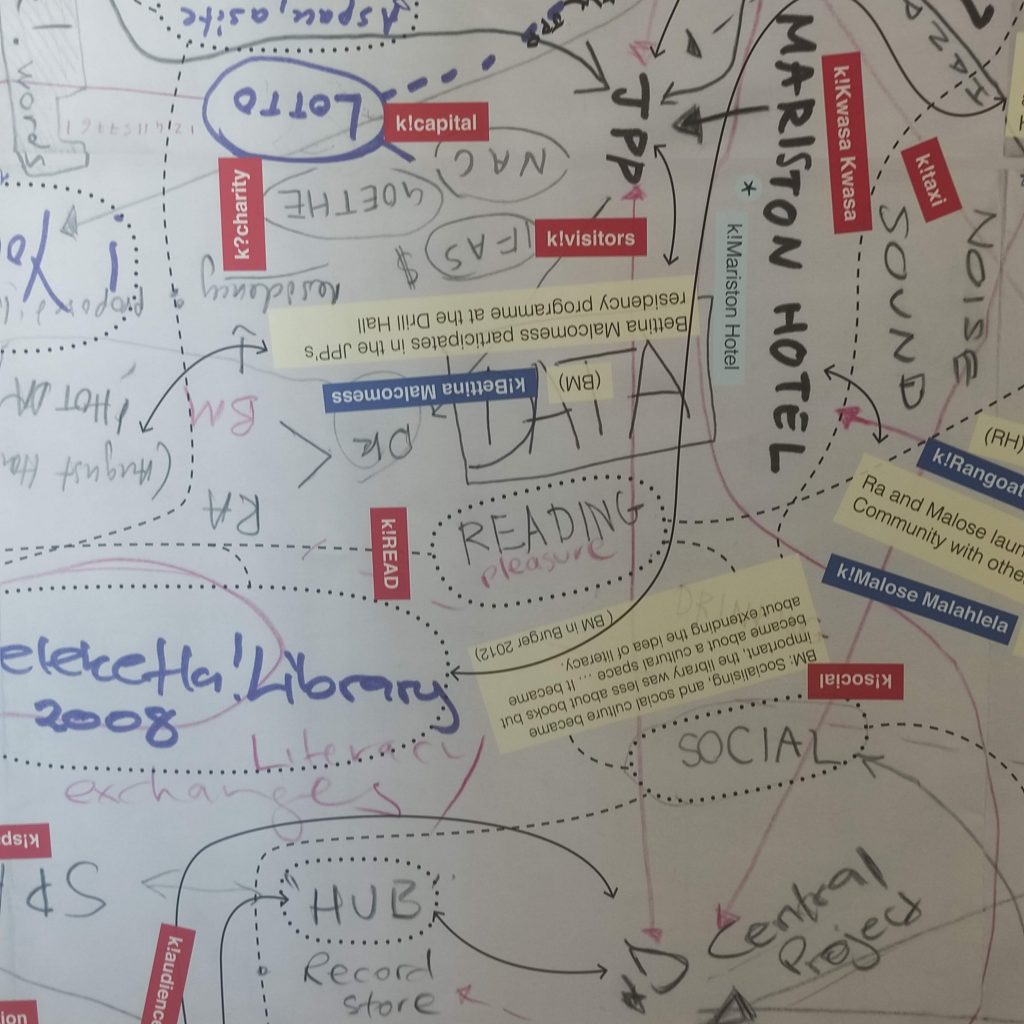 A space, a site
words
LOTTO
k!capital
JPP
MARISTON HOTEL
k!Kwasa Kwasa
k!taxi
NOISE
SOUND
k!Mariston Hotel
*
NAC
GOETHE
k?charity
FAS
$
k!visitors
residency
Bettina Malcomess participates in the JPP's
residency programme at the Drill Hall
(BM)
k!Bettina Malcomess
DR
BM
RA
(August
k!READ
READING
pleasure
(RH)
k!Rangoat
Ra and Malose laun
Community with othe
k!Malose Malahlela
BM: Socialising, and social culture became
important, the library was less about books but
became about a cultural space ... It became
about extending the idea of literacy.
(BM in Burger 2012)
k!social
SOCIAL
eleketla! Library
2008
Literacy
exchanges
k!sp
SP
HUB
Record
store
k!audience
Central
Project
ion